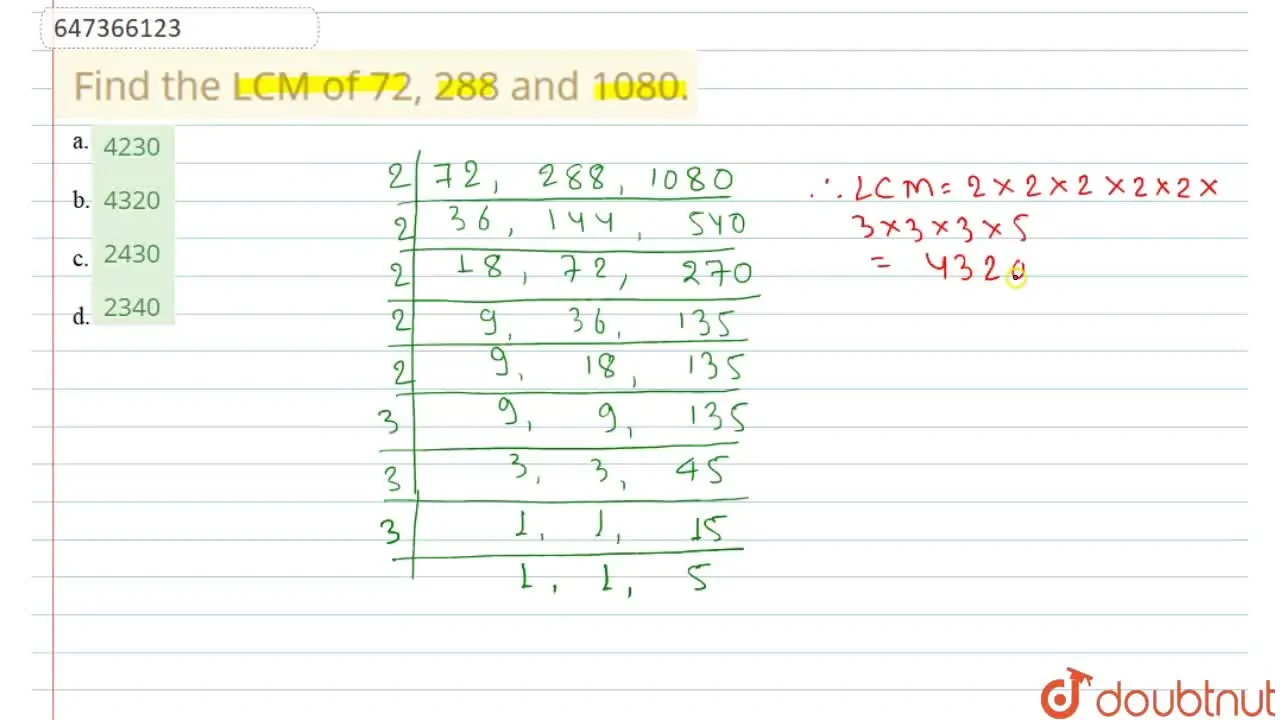 647366123
Find the LCM of 72, 288 and 1080.
a. 4230
b. 4320
c. 2430
d. 2340
2 72, 288, 1080
2 36, 144, 540
2 18, 72, 270
2 9, 36, 135
2 9, 18, 135
3 9, 9, 135
3 3, 3, 45
3 1, 1, 15
1, 1, 5
∴ LCM = 2 × 2 × 2 × 2 × 2 ×
3 × 3 × 3 × 5
= 4320
doubtnut